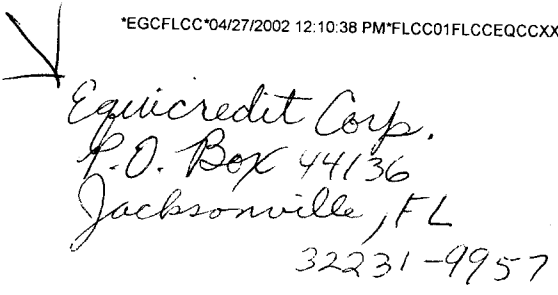 *EGCFLCC*04/27/2002 12:10:38 PM*FLCC01FLCCEQCCXX
Equicredit Corp.
P.O. Box 44136
Jacksonville, FL
32231-9957